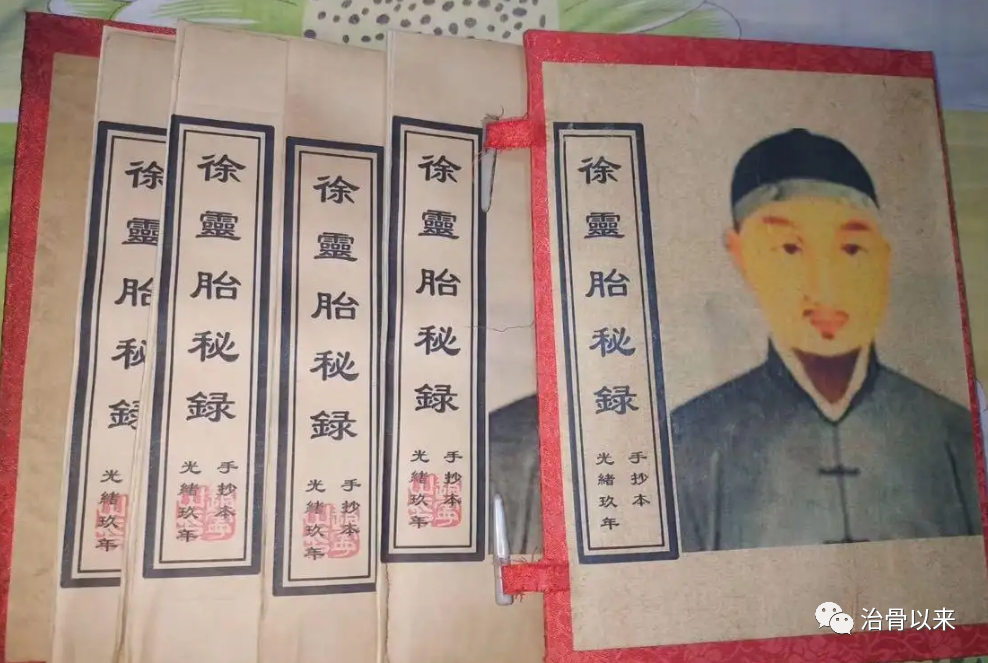 徐靈胎秘録
手抄本
光緒玖年
徐靈胎秘録
手抄本
光緒玖年
徐靈胎秘録
手抄本
光緒玖年
徐靈胎秘録
手抄本
光緒玖年
徐靈胎秘録
光緒玖年
治骨以来